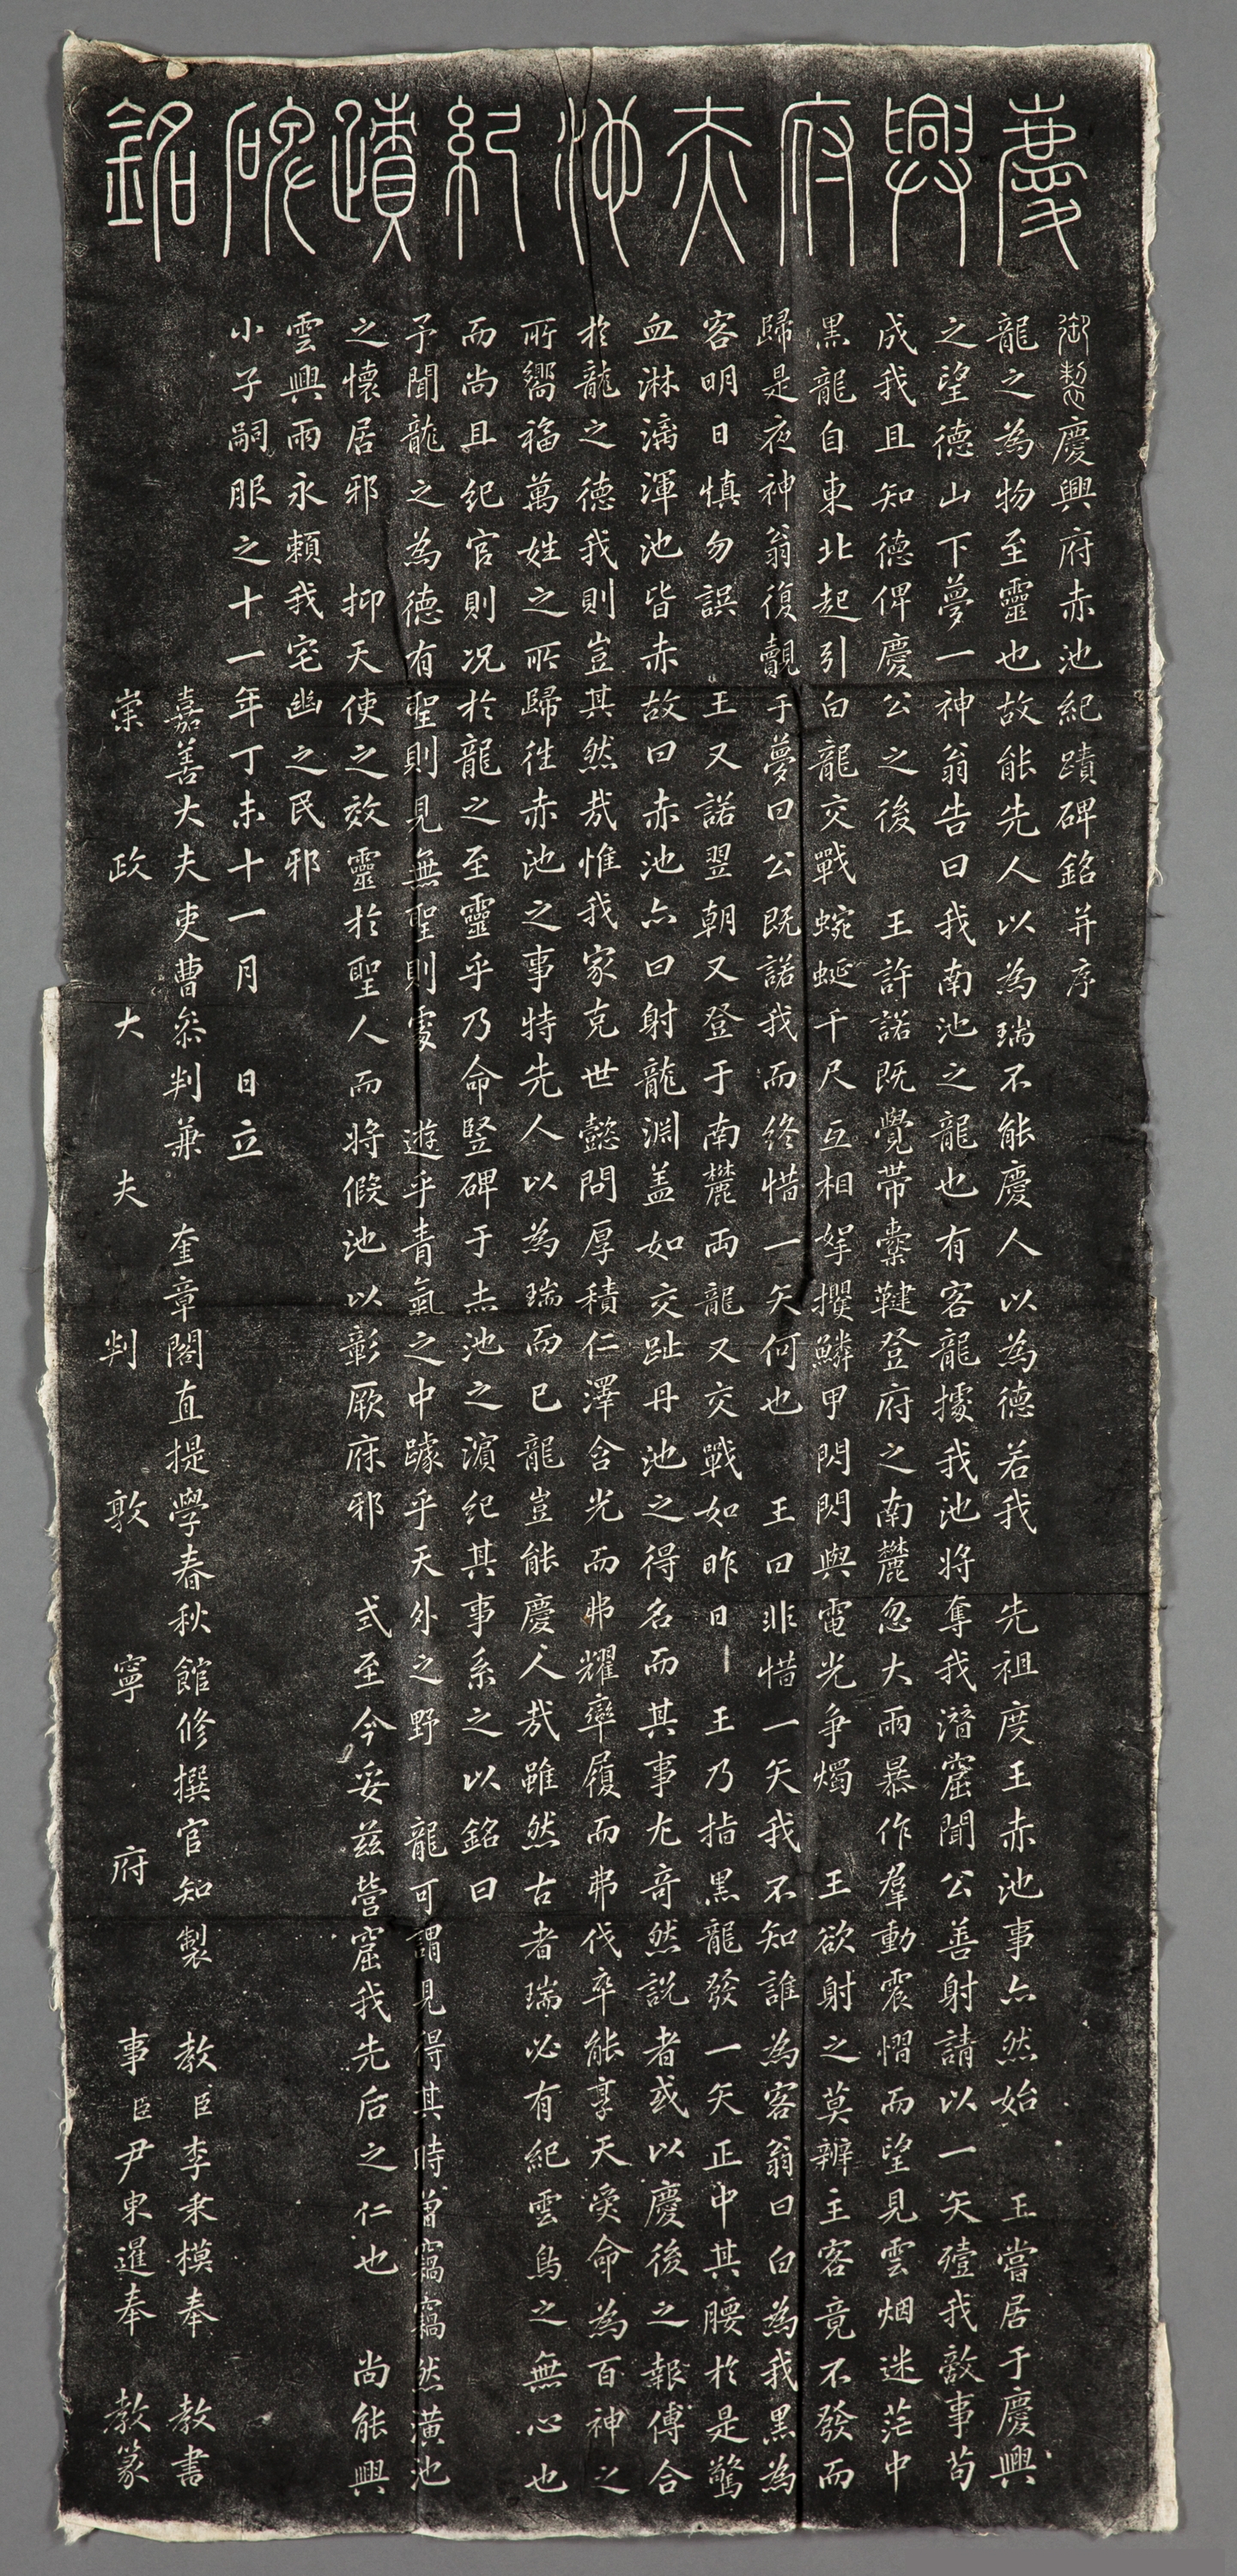 慶興府赤池紀蹟碑銘
御製慶興府赤池紀蹟碑銘并序
龍之為物至靈也故能先人以為瑞不能慶人以為德若我　先祖度王赤池事亦然始　王嘗居于慶興
之望德山下夢一神翁告曰我南池之龍也有客龍攄我池將奪我潛窟聞公善射請以一矢殪我敵事苟
成我且知德俾慶公之後　王許諾既覺帶櫜鞬登府之南麓忽大雨暴作羣動震慴而望見雲烟迷茫中
黑龍自東北起引白龍交戰蜿蜒千尺互相拏攫鱗甲閃閃與電光爭燭　王欲射之莫辨主客竟不發而
歸是夜神翁復覿于夢曰公既諾我而終惜一矢何也　王曰非惜一矢我不知誰為客翁曰白為我黑為
客明日慎勿誤　王又諾翌朝又登于南麓両龍又交戰如昨日　王乃指黑龍發一矢正中其腰於是驚
血淋漓渾池皆赤故曰赤池亦曰射龍淵盖如交趾丹池之得名而其事尤奇然説者或以慶後之報傅合
於龍之德我則豈其然㢤惟我家克世懿問厚積仁澤含光而弗耀率履而弗伐卒能享天奐命為百神之
所嚮福萬姓之所歸徃赤池之事特先人以為瑞而已龍豈能慶人㢤雖然古者瑞必有紀雲鳥之無心也
而尚且紀官則况於龍之至靈乎乃命竪碑于赤池之濵紀其事系之以銘曰
予聞龍之為德有聖則見無聖則䨥　遊乎青氣之中躆乎天外之野　龍可謂見得其時曾竊竊然潢池
之懷居邪　抑天使之效靈於聖人而將假池以彰厥府邪　式至今妥茲營窟我先后之仁也　尚能興
雲興雨永頼我宅幽之民邪
小子嗣服之十一年丁未十一月　日立
嘉善大夫吏曹叅判兼　奎章閣直提學春秋館修撰官知製　教臣李秉模奉　教書
崇政大夫判敦寧府事臣尹東暹奉　教篆